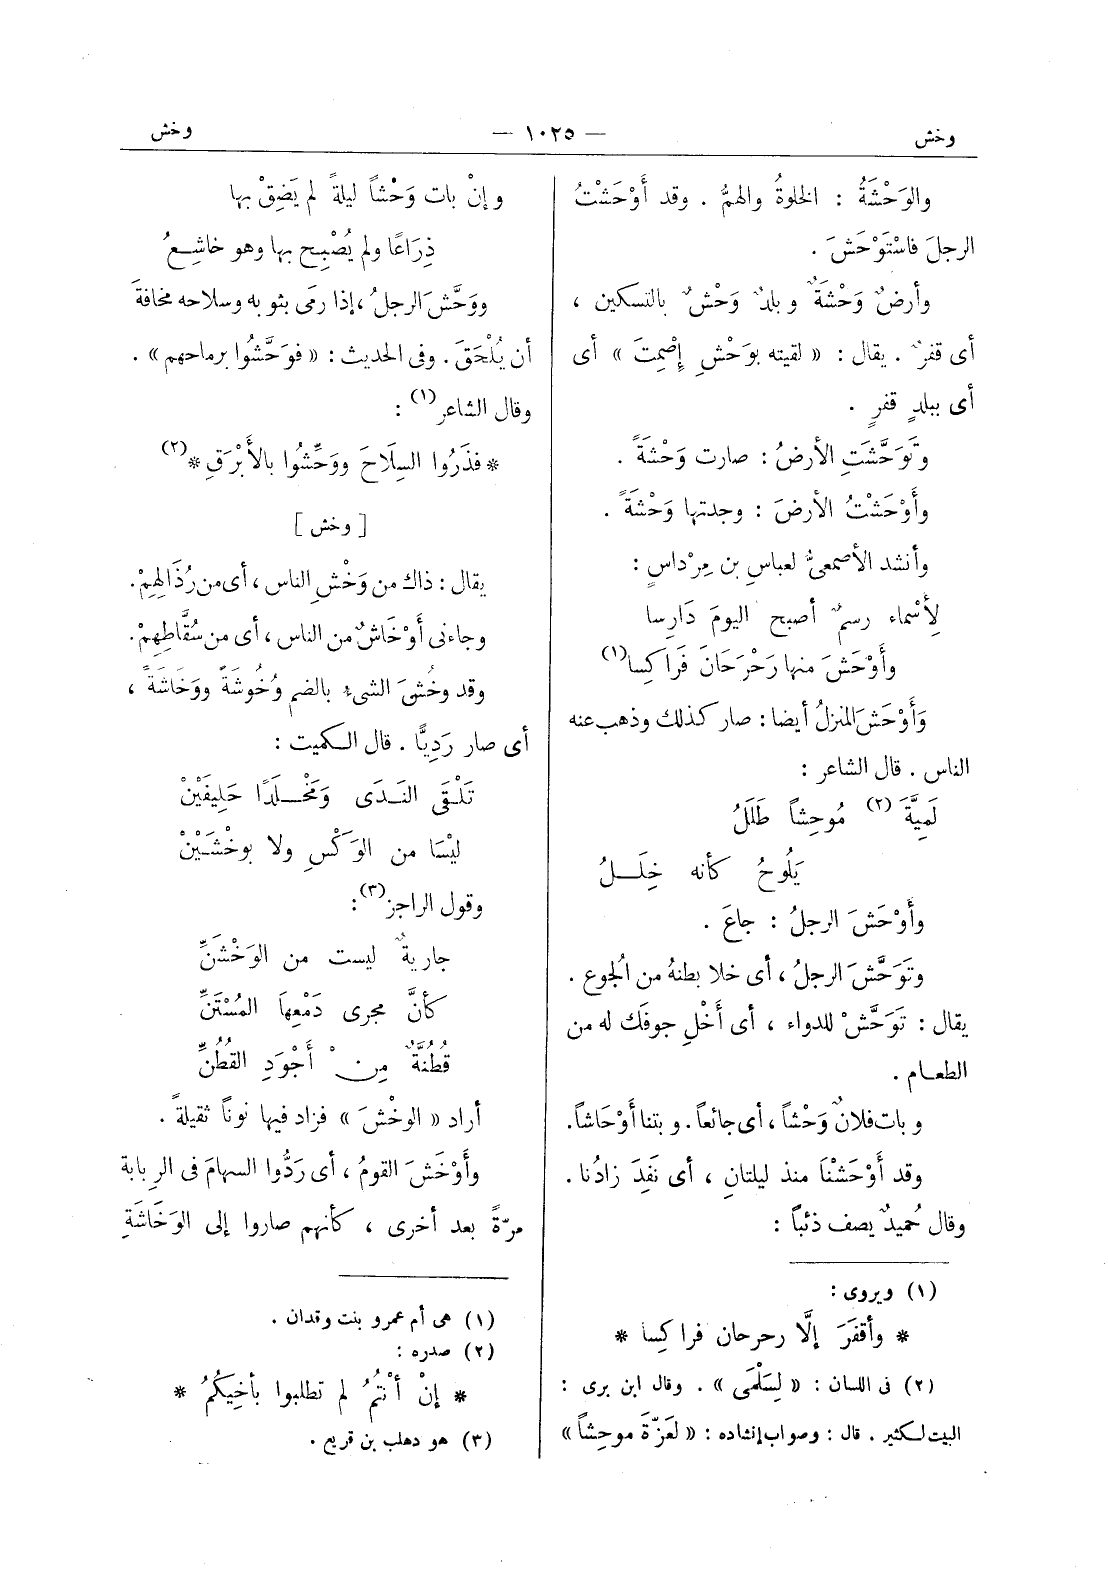 وخش — ١٠٢٥ — وخش
والوَحْشَةُ : الخلوةُ والهمُّ . وقد أَوْحَشْتُ
الرجلَ فاسْتَوْحَشَ .
وأرضٌ وَحْشَةٌ وبلدٌ وَحْشٌ بالتسكين ،
أى قفرٌ . يقال : « لقيته بوَحْشِ إصْمِتَ » أى
أى ببلدٍ قفرٍ .
وتَوَحَّشَتِ الأرضُ : صارت وَحْشَةً .
وأَوْحَشْتُ الأرضَ : وجدتها وَحْشَةً .
وأنشد الأصمعىُّ لعباسِ بن مِرْداسٍ :
لِأَسْماء رسمٌ أصبح اليومَ دَارِسا
وأَوْحَشَ منها رَحْرَحَانَ فَرَاكِسا(١)
وَأَوْحَشَ المنزلُ أيضا : صار كذلك وذهب عنه
الناس . قال الشاعر :
لَمِيَّةَ (٢) مُوحِشاً طَلَلُ
يَلُوحُ كأنه خِلَــلُ
وأَوْحَشَ الرجلُ : جاعَ .
وتَوَحَّشَ الرجلُ ، أى خلا بطنهُ من الجُوع .
يقال : تَوَحَّشْ للدواء ، أى أَخْلِ جوفَك له من
الطعـام .
وبات فلانٌ وَحْشاً ، أى جائعاً . وبتنا أَوْحَاشاً .
وقد أَوْحَشْنَا منذ ليلتانِ ، أى نَفِدَ زادُنا .
وقال حُميدٌ يصف ذئباً :
(١) ويروى :
* وأقفَرَ إلَّا رحرحان فراكِسا *
(٢) فى اللسان : « لِسَلْمَى » . وقال ابن برى :
البيت لكثير . قال : وصواب إنشاده : « لعَزّةَ موحِشاً »
وإنْ بات وَحْشاً ليلةً لم يَضِقْ بها
ذِرَاعًا ولم يُصْبِح بها وهو خاشِعُ
ووَحَّشَ الرجلُ ، إذا رمَى بثوبه وسلاحه مخافةَ
أن يُلْحَقَ . وفى الحديث : « فوَحَّشُوا برماحهم » .
وقال الشاعر(١) :
* فذَرُوا السِلَاحَ ووَحِّشُوا بالأَبْرَقِ *(٢)
[ وخش ]
يقال : ذاك من وَخْشِ الناس ، أى من رُذَالِهِمْ .
وجاءنى أَوْخَاشٌ من الناس ، أى من سُقَّاطِهِمْ .
وقد وخُشَ الشىء بالضم وُخُوشَةً ووَخَاشَةً ،
أى صار رَدِيًّا . قال الكميت :
تَلْقَى النَـدَى وَمَخْـلَدًا حَلِيفَيْنْ
ليْسَا من الوَكْسِ ولا بوخْشَـيْنْ
وقول الراجز(٣) :
جاريةٌ ليست من الوَخْشَنِّ
كأنَّ مجرى دَمْعِهَا المُسْتَنِّ
قُطُنَّةٌ مِنْ أَجْوَدِ القُطُنِّ
أراد « الوخْشَ » فزاد فيها نوناً ثقيلةً .
وأَوْخَشَ القومُ ، أى رَدُّوا السهامَ فى الرِبابة
مرّةً بعد أخرى ، كأنهم صاروا إلى الوَخَاشَةِ
(١) هى أم عمرو بنت وقدان .
(٢) صدره :
* إنْ أنْتُمُ لم تطلبوا بأخِيكُمُ *
(٣) هو دهلب بن قريع .